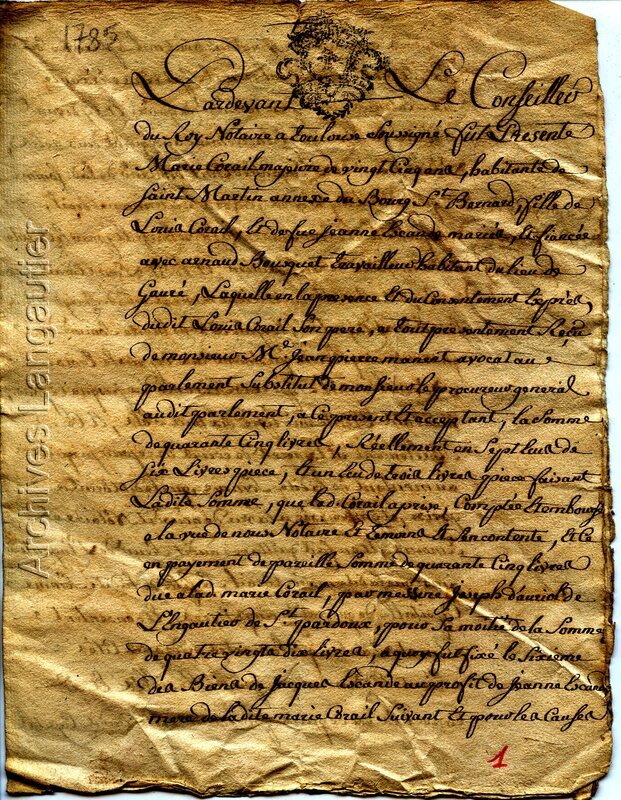 1735
Pardevant Le Conseiller
du Roy Notaire a Toulouse Soussigné fut Presente
Marie Corail majeure de vingt Cinq ans, habitante de
Saint Martin annexe du Bourg St. Bernard, fille de
Louis Corail, Et de fue Jeanne Escande mariés, Et fiancée
avec arnaud Bousquet travailleur habitant du lieu de
Gauré, Laquelle en la presence Et du Consentement Exprés
dudit Louis Corail Son pere, a tout presentement Reçu
de monsieur Me. Jean pierre manent avocat au
parlement Substitut de monsieur le procureur general
audit parlement, a Ce present Et acceptant, la Somme
de quarante Cinq livres, Réellement en Sept Ecus de
Six Livres piece, Et un Ecu de trois livres piece faisant
Ladite Somme, que led. Corail a prise, Comptée Et emboursé
a la vue de nous Notaire Et temoins Et Sen contente, Et Ce
en payement de pareille Somme de quarante Cinq livres
due a lad. marie Corail, par messire Joseph dauriol de
L'Engautier de St. pardoux, pour Sa moitié de la Somme
de quatre vingts dix livres, a quoy fut fixé le Sixieme
des Biens de Jacques Escande au profit de Jeanne Escande
mere de ladite marie Corail Suivant Et pour les Causes
1
Archives Langautier